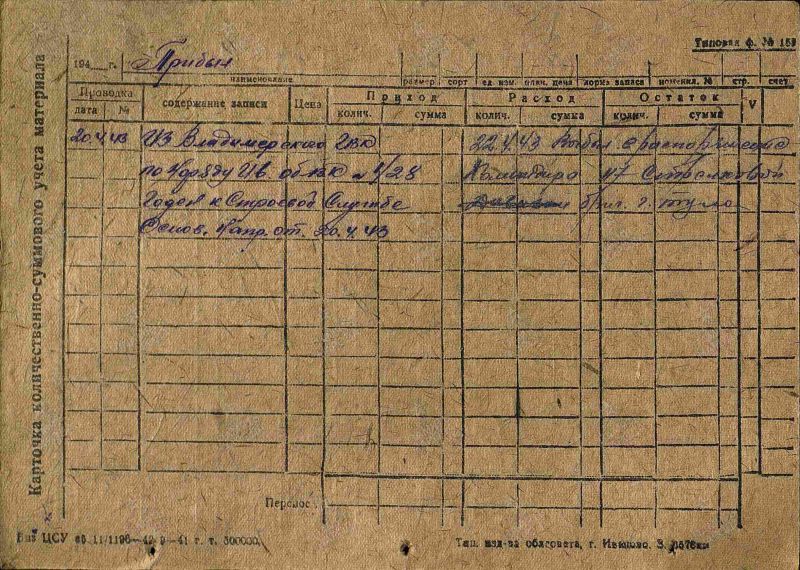 Типовая ф. №
194 г. Прибыл
наименование размер сорт ед. изм. план. цена норма запаса номенкл. № стр. счет
Карточка количественно-суммового учета материала
Проводка содержание записи Цена Приход Расход Остаток V
дата № колич. сумма колич. сумма колич. сумма
20.4.43 Из Владимирского ГВК 22.4.43 Выбыл в распоряжение
по наряду Ив. обл.ВК № 1/28 Командира 47 Стрелковой
Годен к Строевой Службе г. Тула
Основ. Напр. от. 20.4.43
Перенос
ЦСУ 11/1196—42 9—41 г. т. 300000.
Тип. изд-ва облсовета, г. Иваново. З.